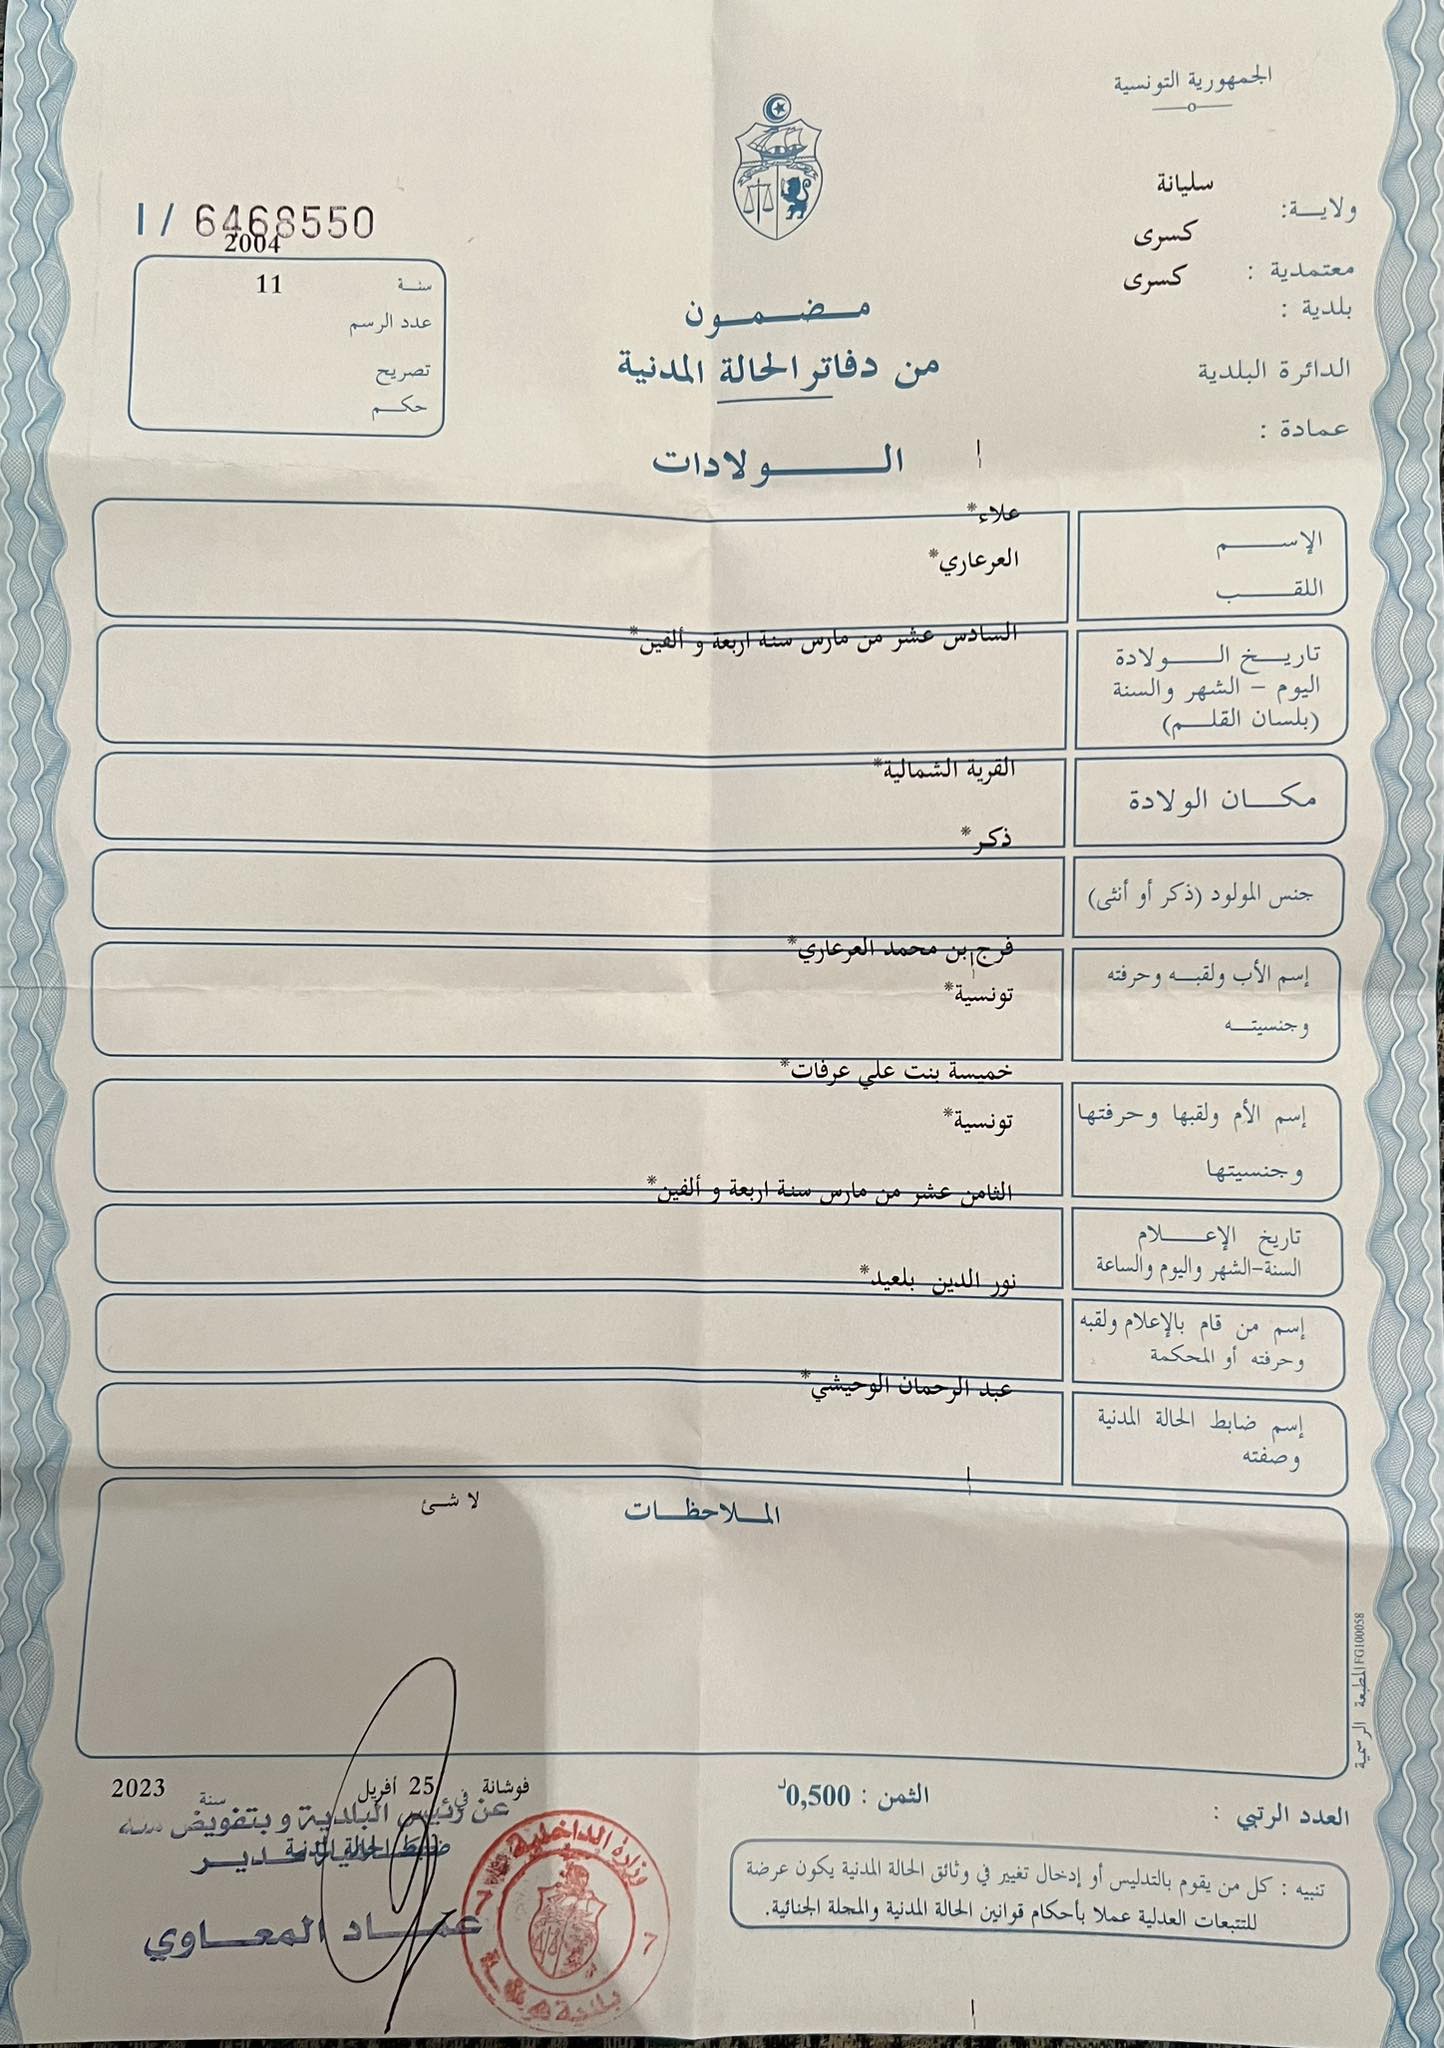 الجمهورية التونسية
ولايـــة: سليانة
معتمدية : كسرى
بلدية : كسرى
الدائرة البلدية
عمادة :
I / 6468550
2004
سنـة 11
عدد الرسم
تصريح
حكـم
مـضـمـون
من دفاتر الحالة المدنية
الـــولادات
الإســـم علاء*
اللقـــب العرعاري*
تاريــخ الـــولادة السادس عشر من مارس سنة اربعة و ألفين*
اليوم - الشهر والسنة
(بلسان القلـم)
مكـــان الولادة القرية الشمالية*
ذكر*
جنس المولود (ذكر أو أنثى)
فرج بن محمد العرعاري*
إسم الأب ولقبـه وحرفته
تونسية*
وجنسيتـــه
خميسة بنت علي عرفات*
إسم الأم ولقبها وحرفتها
تونسية*
وجنسيتها
الثامن عشر من مارس سنة اربعة و ألفين*
تاريخ الإعـــلام
السنة-الشهر واليوم والساعة
نور الدين بلعيد*
إسم من قام بالإعلام ولقبه
وحرفته أو المحكمة
عبد الرحمان الوحيشي*
إسم ضابط الحالة المدنية
وصفته
الملاحظـات
لا شئ
المطبعة الرسمية FG100058
العدد الرتبي :
الثمن : 0,500د
فوشانة في 25 أفريل سنة 2023
عن رئيس البلدية وبتفويض منه
ضابط الحالة المدنية
عمـاد المعـاوي
وزارة الداخلية
7
تنبيه : كل من يقوم بالتدليس أو إدخال تغيير في وثائق الحالة المدنية يكون عرضة
للتتبعات العدلية عملا بأحكام قوانين الحالة المدنية والمجلة الجنائية.